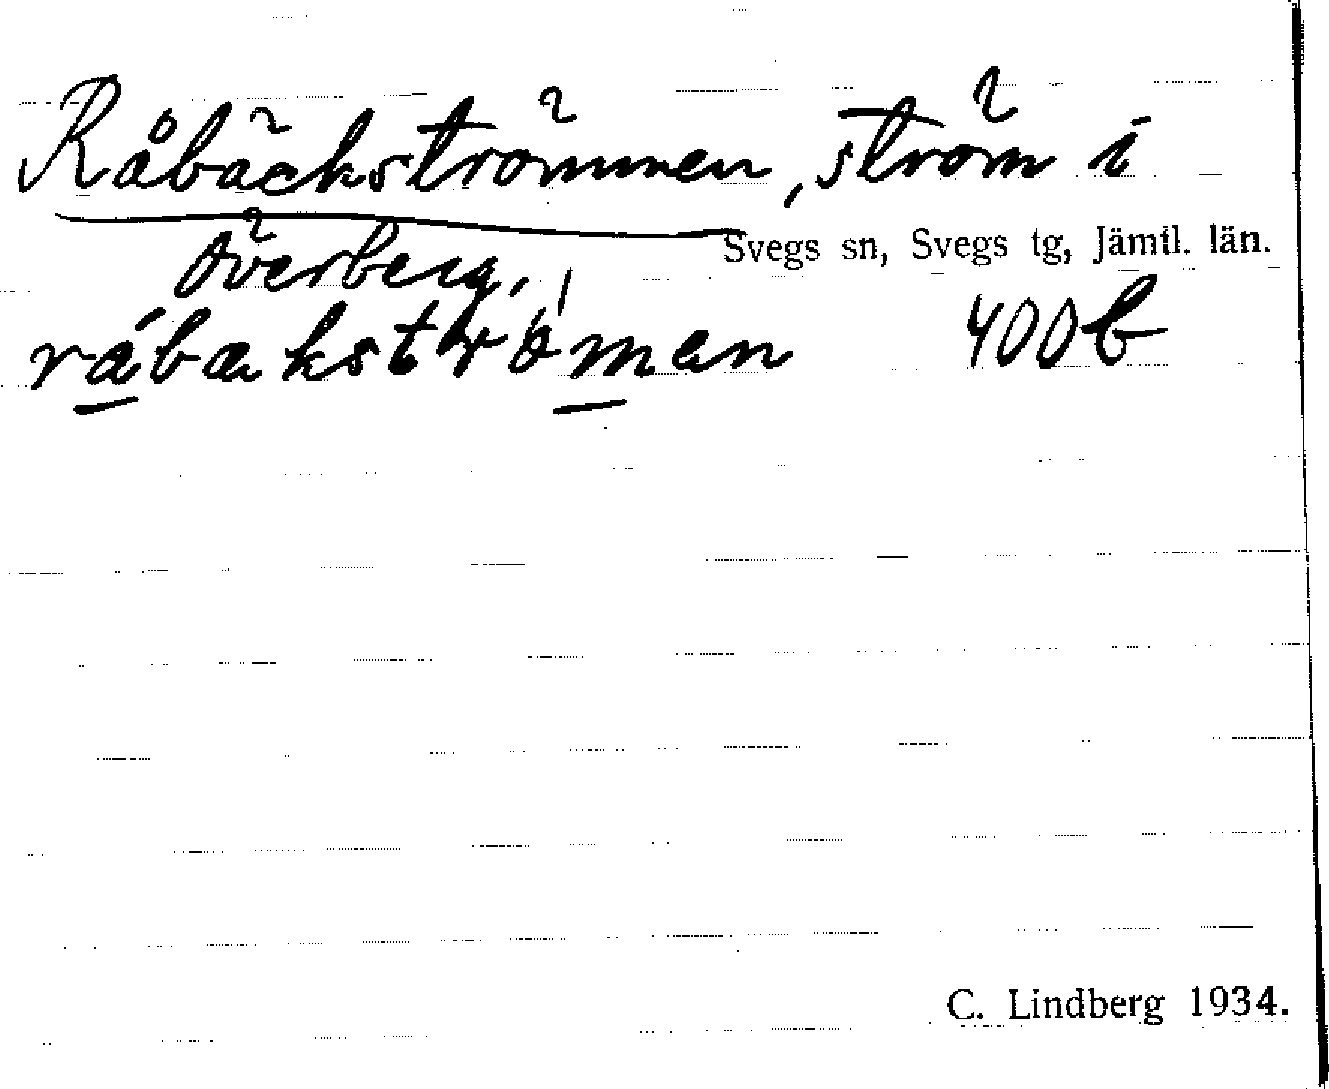 Råbäckströmmen, ström i
Överberg,
Svegs sn, Svegs tg, Jämtl. län.
råbækströmen 400b
C. Lindberg 1934.